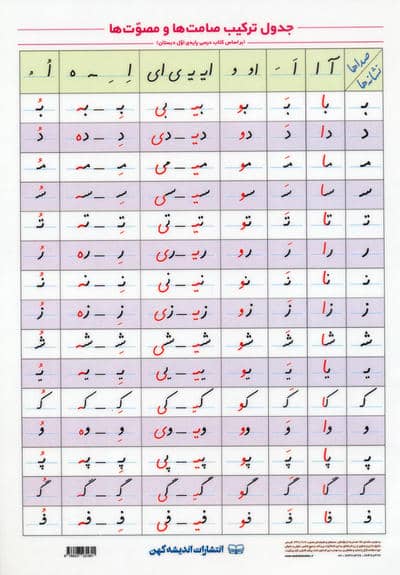 جدول ترکیب صامت‌ها و مصوّت‌ها
(بر اساس کتاب درسی پایه‌ی اوّل دبستان)
صداها نشانه‌ها آ ا اَ ـَ او و ایـ یـ ی ای اِ ـِ ـه ه اُ ـُ
بـ با بَـ بو بیـ ـ بی بِـ ـ به بُـ
د دا دَ دو دیـ ـ دی دِ ـ ده دُ
مـ ما مَـ مو میـ ـ می مِـ ـ مه مُـ
سـ سا سَـ سو سیـ ـ سی سِـ ـ سه سُـ
تـ تا تَـ تو تیـ ـ تی تِـ ـ ته تُـ
ر را رَ رو ریـ ـ ری رِ ـ ره رُ
نـ نا نَـ نو نیـ ـ نی نِـ ـ نه نُـ
ز زا زَ زو زیـ ـ زی زِ ـ زه زُ
شـ شا شَـ شو شیـ ـ شی شِـ ـ شه شُـ
یـ یا یَـ یو ییـ ـ یی یِـ ـ یه یُـ
کـ کا کَـ کو کیـ ـ کی کِـ ـ که کُـ
و وا وَ وو ویـ ـ وی وِ ـ وه وُ
پـ پا پَـ پو پیـ ـ پی پِـ ـ په پُـ
گـ گا گَـ گو گیـ ـ گی گِـ ـ گه گُـ
فـ فا فَـ فو فیـ ـ فی فِـ ـ فه فُـ
انتشارات اندیشه کهن